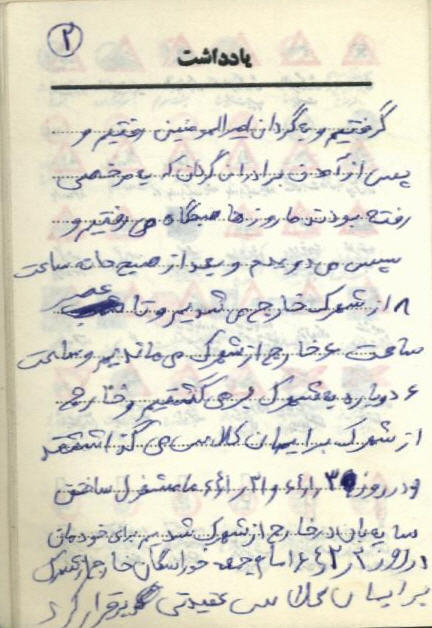 ۲
یادداشت
گرفتیم و به گردان امیرالمومنین رفتیم و
پس از آمدن برادران گردان که به مرخصی
رفته بودند ما روزها صبحگاه می رفتیم و
سپس می دویدیم و بعد از صبحانه ساعت
۸ از شهرک خارج می شدیم و تا عصر
ساعت ۶ خارج از شهرک می ماندیم و ساعت
۶ دوباره به شهرک بر می گشتیم و خارج
از شهرک برایمان کلاس می گذاشتند
و در روز و ما مشغول ساختن
سایه بان در خارج از شهرک شدیم برای خودمان
در روز امام جمعه خوراسگان خارج از شهرک
برایمان کلاس عقیدتی برقرار کرد